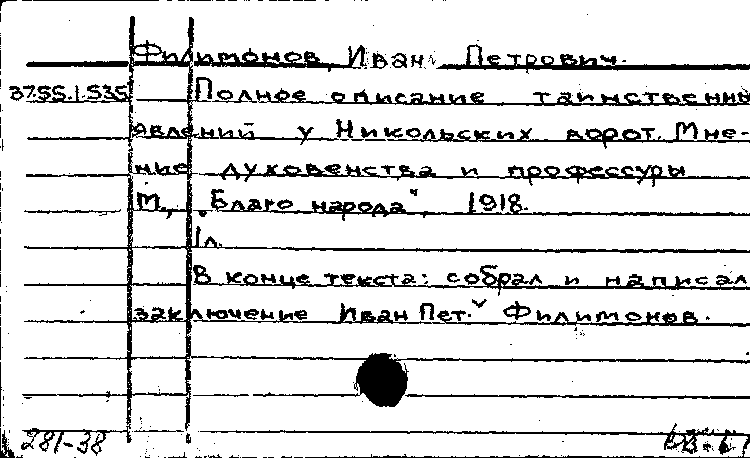 Филимонов, Иван Петрович.
3755.1.535 Полное описание таинственны
явлений у Никольских ворот. Мне-
ние духовенства и профессуры
М., „Благо народа", 1918.
1л.
В конце текста: собрал и написал
заключение Иван Пет. Филимонов.
281-38